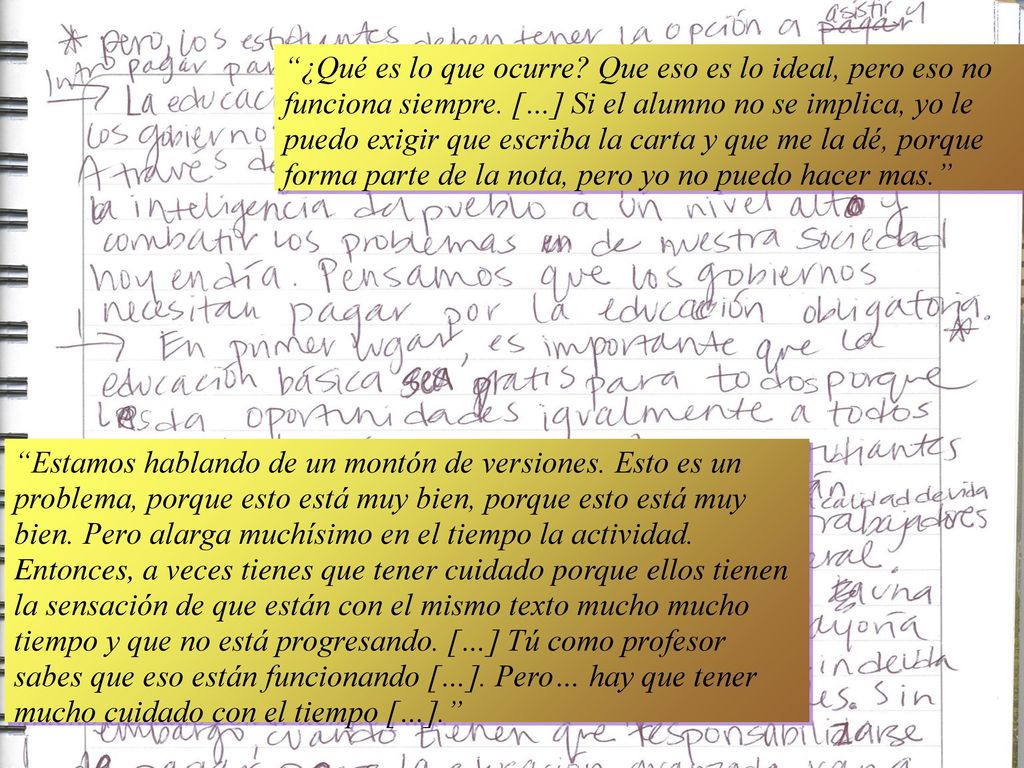 asistir y
* pero, los estudiantes deben tener la opción a pagar
Intro pagar par
“¿Qué es lo que ocurre? Que eso es lo ideal, pero eso no
funciona siempre. […] Si el alumno no se implica, yo le
puedo exigir que escriba la carta y que me la dé, porque
forma parte de la nota, pero yo no puedo hacer mas.”
La educaci
los gobierno
A través de
la inteligencia del pueblo a un nivel alto y
combatir los problemas de nuestra sociedad
hoy en día. Pensamos que los gobiernos
necesitan pagar por la educación obligatoria.
*
En primer lugar, es importante que la
educación básica sea gratis para todos porque
les da oportunidades igualmente a todos
“Estamos hablando de un montón de versiones. Esto es un
problema, porque esto está muy bien, porque esto está muy
bien. Pero alarga muchísimo en el tiempo la actividad.
Entonces, a veces tienes que tener cuidado porque ellos tienen
la sensación de que están con el mismo texto mucho mucho
tiempo y que no está progresando. […] Tú como profesor
sabes que eso están funcionando […]. Pero… hay que tener
mucho cuidado con el tiempo […].”
udiantes
calidad de vida
trabajadores
eral.
una
ayoría
indebida
es. Sin
embargo, cuando tienen que responsabilizarse